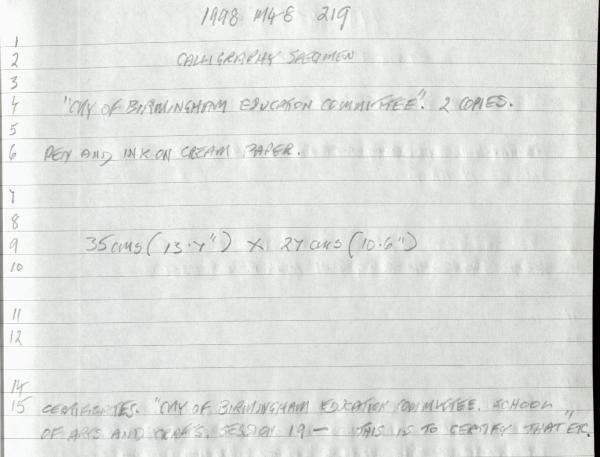 1998 M48 219
1
2 CALLIGRAPHY SPECIMEN
3
4 "CITY OF BIRMINGHAM EDUCATION COMMITTEE". 2 COPIES.
5
6 PEN AND INK ON CREAM PAPER.
7
8
9 35cms (13.7") X 27cms (10.6")
10
11
12
14
15 CERTIFICATES. "CITY OF BIRMINGHAM EDUCATION COMMITTEE. SCHOOL
OF ARTS AND CRAFTS. SESSION 19— THIS IS TO CERTIFY THAT ETC."